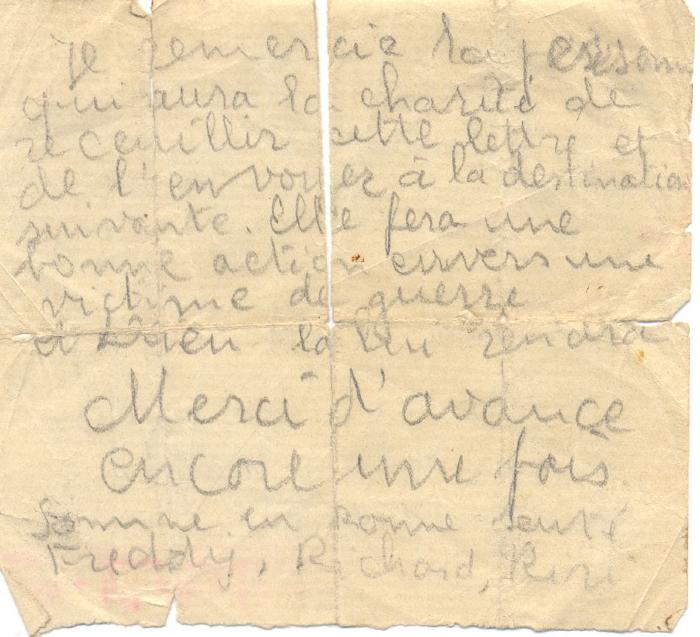 Je remercie la personne
qui aura la charité de
receuillir cette lettre et
de l'envoyer à la destination
suivante. Elle fera une
bonne action envers une
victime de guerre
et Dieu la lui rendra
Merci d'avance
encore une fois
Somme en bonne santé
Freddy, Richard, Riri